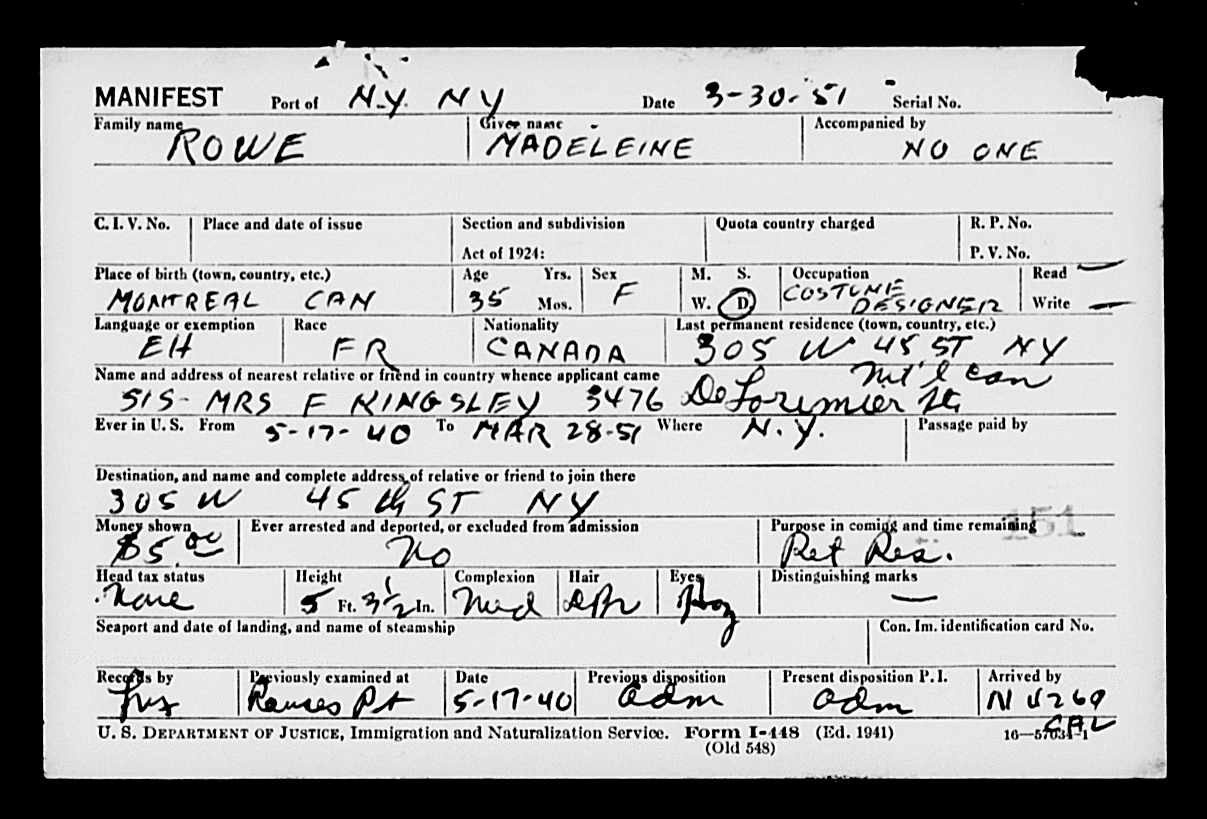 MANIFEST Port of N.Y. NY Date 3-30-51 Serial No.
Family name ROWE Given name MADELEINE Accompanied by NO ONE
C. I. V. No. Place and date of issue Section and subdivision Quota country charged R. P. No.
Act of 1924: P. V. No.
Place of birth (town, country, etc.) Age Yrs. Sex M. S. Occupation Read —
MONTREAL CAN 35 Mos. F W. D COSTUME DESIGNER Write —
Language or exemption Race Nationality Last permanent residence (town, country, etc.)
EH FR CANADA 305 W 45 ST NY
Name and address of nearest relative or friend in country whence applicant came Mt'l Can
SIS- MRS F KINGSLEY 3476 De Lorimier St
Ever in U. S. From 5-17-40 To MAR 28-51 Where N.Y. Passage paid by
Destination, and name and complete address of relative or friend to join there
305 W 45th ST NY
Money shown Ever arrested and deported, or excluded from admission Purpose in coming and time remaining 151
$5.00 No Ret Res.
Head tax status Height Complexion Hair Eyes Distinguishing marks
None 5 Ft. 3 1/2 In. Med DBr Haz —
Seaport and date of landing, and name of steamship Con. Im. identification card No.
Records by Previously examined at Date Previous disposition Present disposition P. I. Arrived by
Rouses Pt 5-17-40 adm adm
U. S. DEPARTMENT OF JUSTICE, Immigration and Naturalization Service. Form I-448 (Ed. 1941) 16—57034-1
(Old 548)